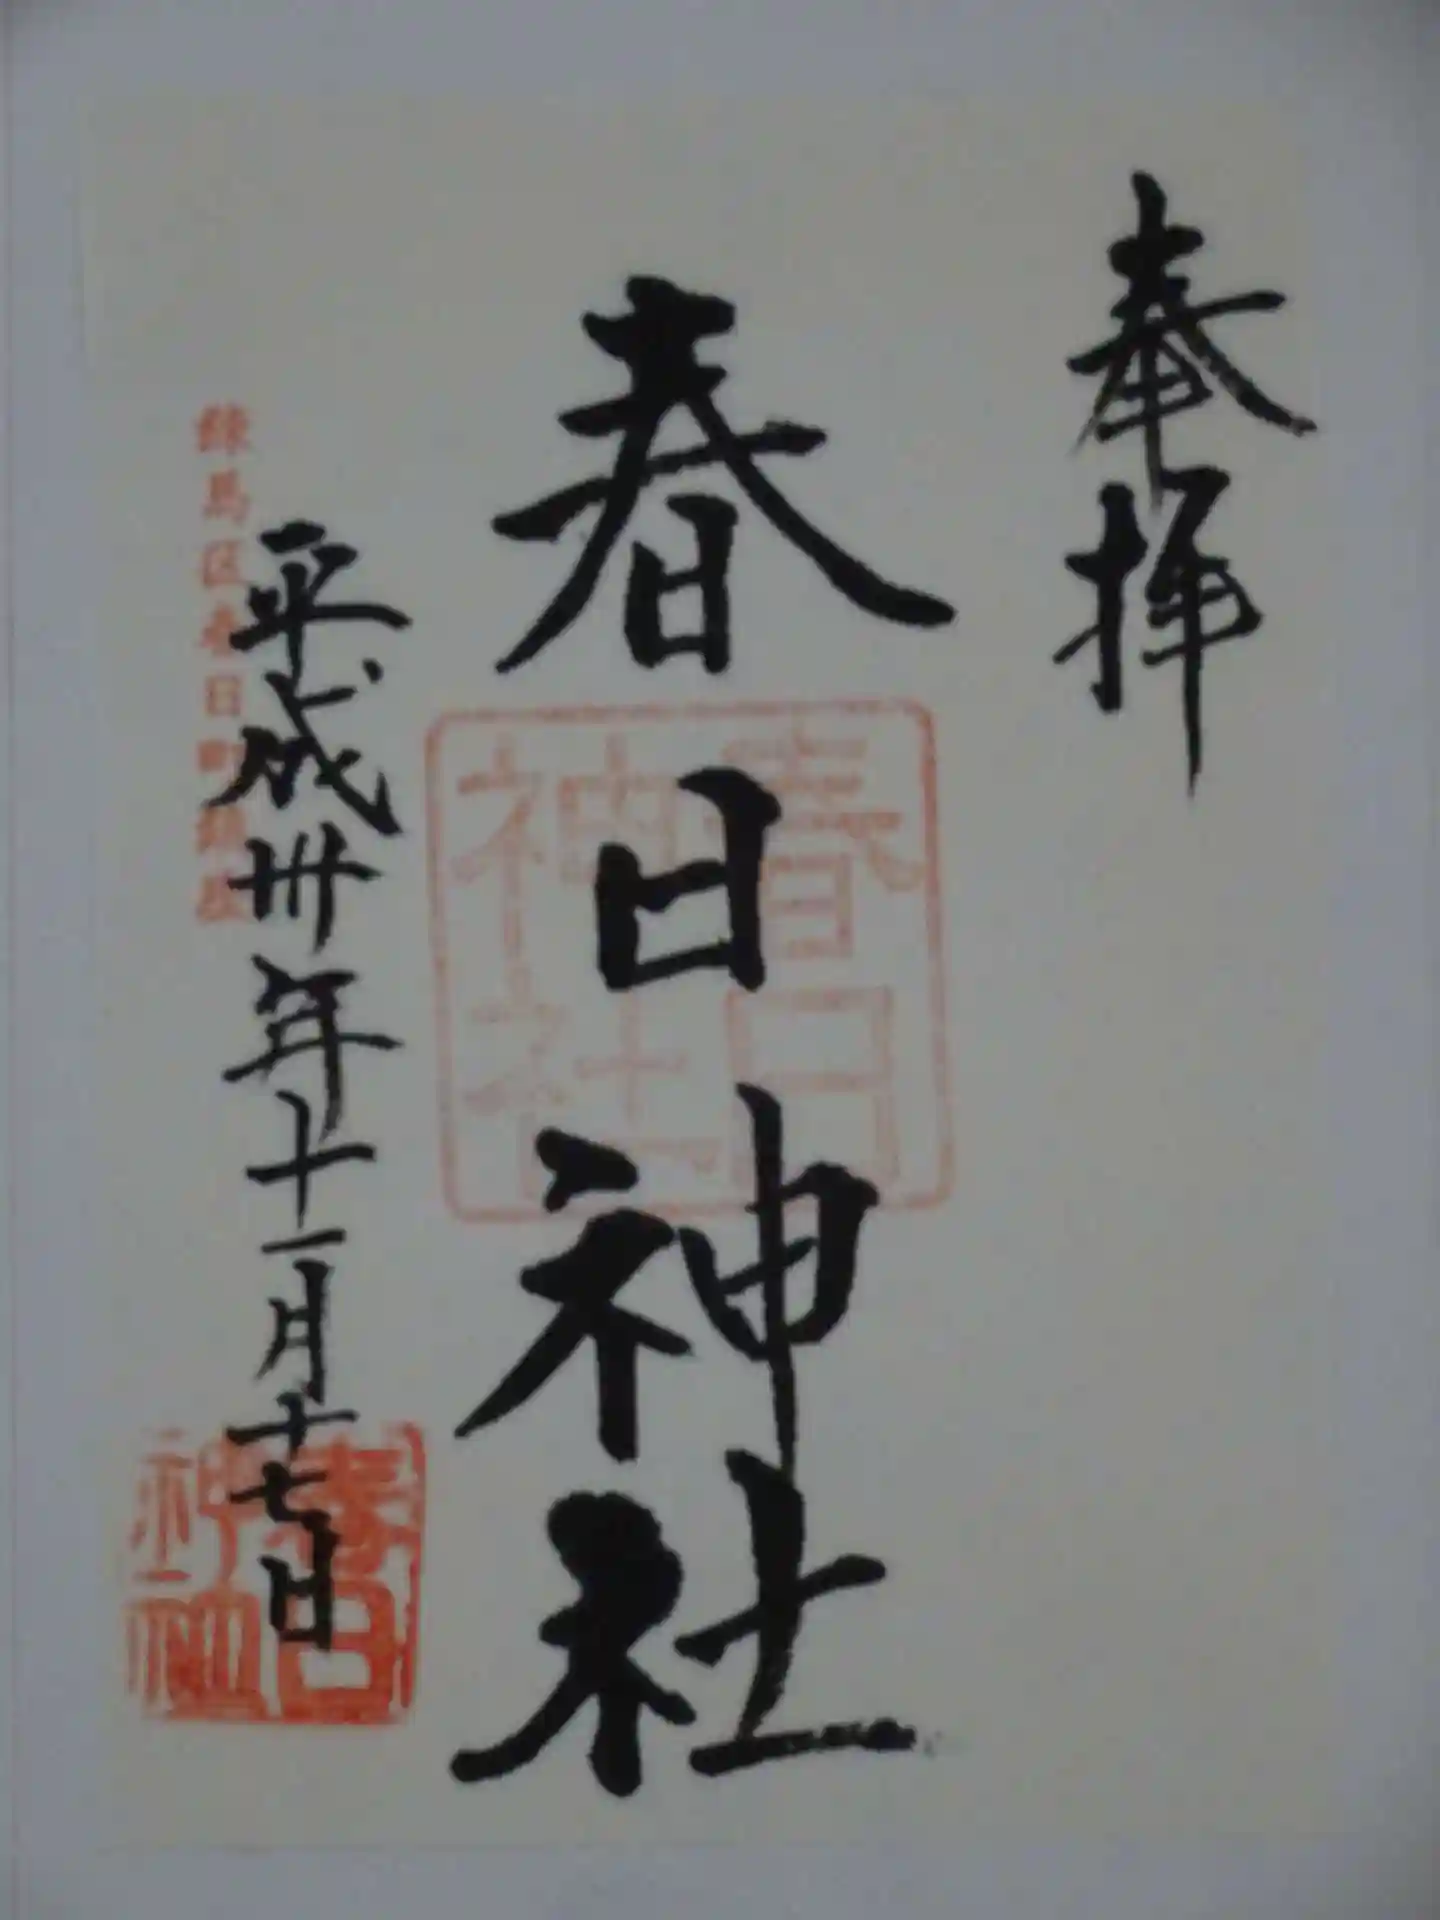 奉拝
春日神社
春日神社
平成卅年十一月十七日
練馬区春日町鎮座
春日神社